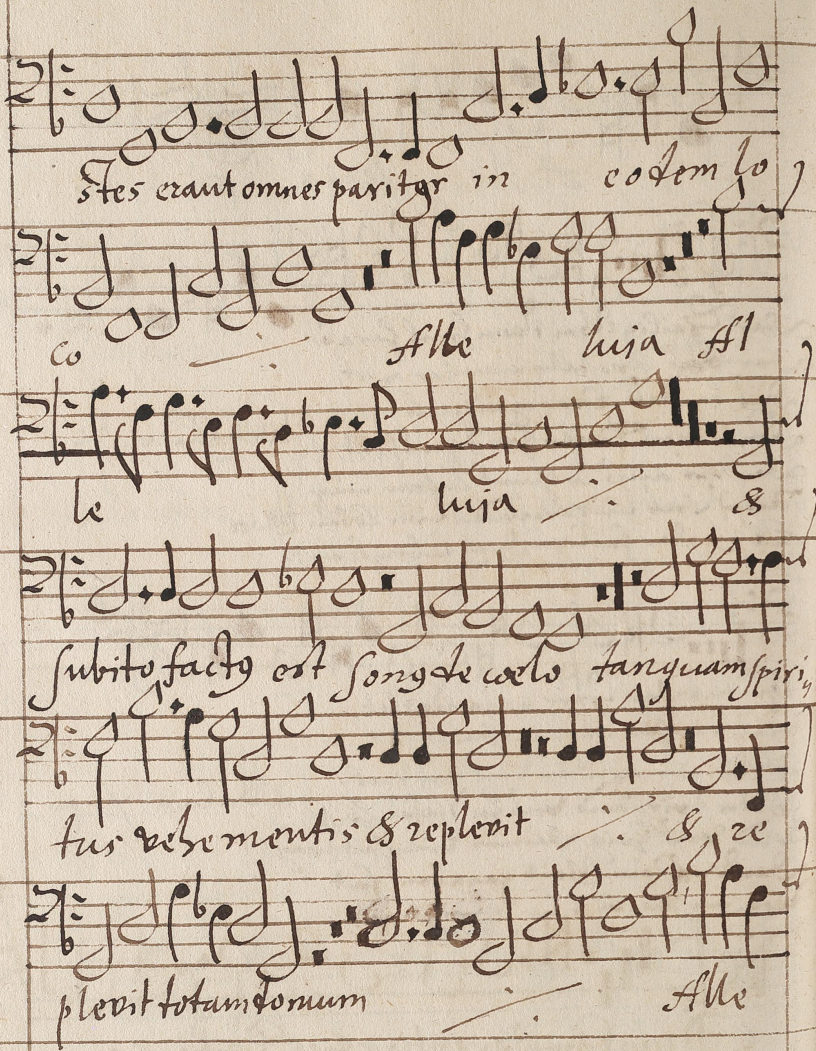 stes erant omnes pariter in eodem lo
co ⁒ Alle luja Al
le luja ⁒ &
subito factꝰ est sonꝰ de coelo tanquam spiri
tus vehementis & replevit ⁒ & re
plevit totam domum ⁒ Alle